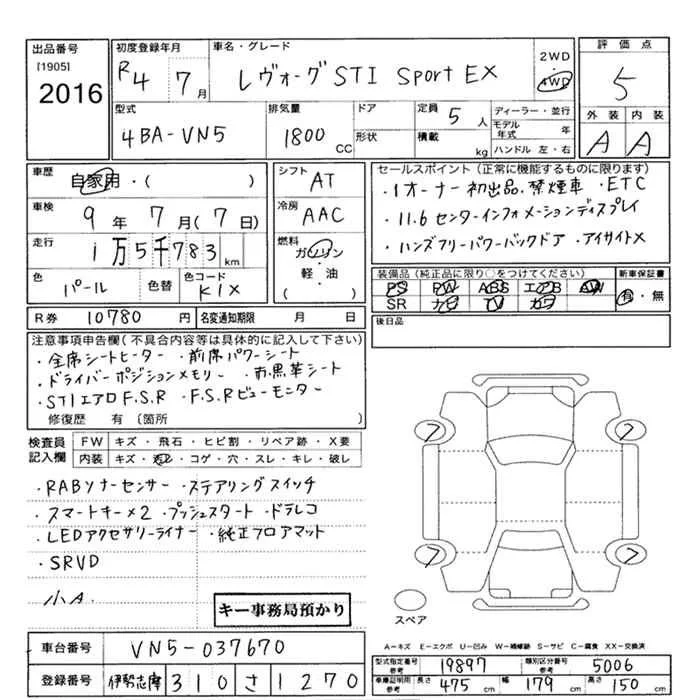 出品番号
[1905]
2016
初度登録年月
R4 7月
車名・グレード
レヴォーグ STI Sport EX
2WD
4WD
評価点
5
外装 内装
A A
型式
4BA-VN5
排気量
1800 CC
ドア
形状
定員 5 人
積載 kg
ディーラー・並行
モデル年式 年
ハンドル 左・右
車歴
自家用・( )
車検
9年 7月(7日)
走行
1万5千783km
色
パール
色替
色コード
K1X
シフト
AT
冷房
AAC
燃料
ガソリン
・軽油
( )
セールスポイント(正常に機能するものに限ります)
・1オーナー 初出品 禁煙車 ・ETC
・11.6 センターインフォメーションディスプレイ
・ハンズフリーパワーバックドア ・アイサイトX
装備品(純正品に限り○をつけてください)
PS PW ABS エアB AW
SR ナビ TV カワ
新車保証書
有・無
後日品
R券 10780 円
名変通知期限 月 日
注意事項申告欄(不具合内容等は具体的に記入して下さい)
・全席シートヒーター ・前席パワーシート
・ドライバーポジションメモリー ・赤黒革シート
・STIエアロF.S.R ・F.S.Rビューモニター
修復歴 有 〔箇所
検査員記入欄
FW キズ・飛石・ヒビ割・リペア跡・X要
内装 キズ・汚レ・コゲ・穴・スレ・キレ・破レ
・RABソナーセンサー ・ステアリングスイッチ
・スマートキー×2 ・プッシュスタート ・ドラレコ
・LEDアクセサリーライナー ・純正フロアマット
・SRVD
小A
キー事務局預かり
7 7
7 7
スペア
A=キズ E=エクボ U=凹み W=補修跡 S=サビ C=腐食 XX=交換済
車台番号
VN5-037670
登録番号
伊勢志摩 310 さ 1270
型式指定番号 参考
19897
類別区分番号 参考
5006
車庫証明用 参考
長さ 475 cm
幅 179 cm
高さ 150 cm